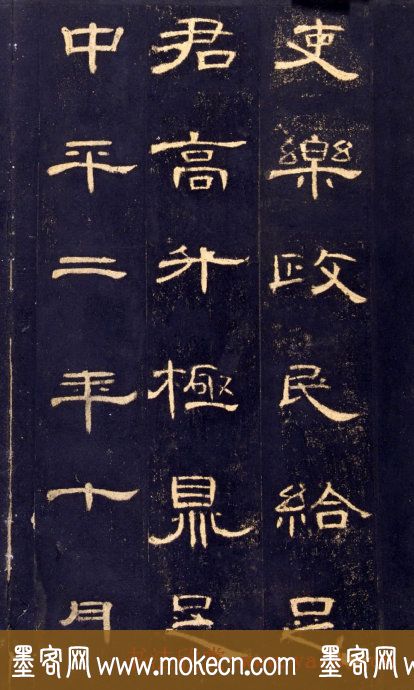 吏樂政民給足
君高升極鼎足
中平二年十月
墨客网 www.mokecn.com 墨客网